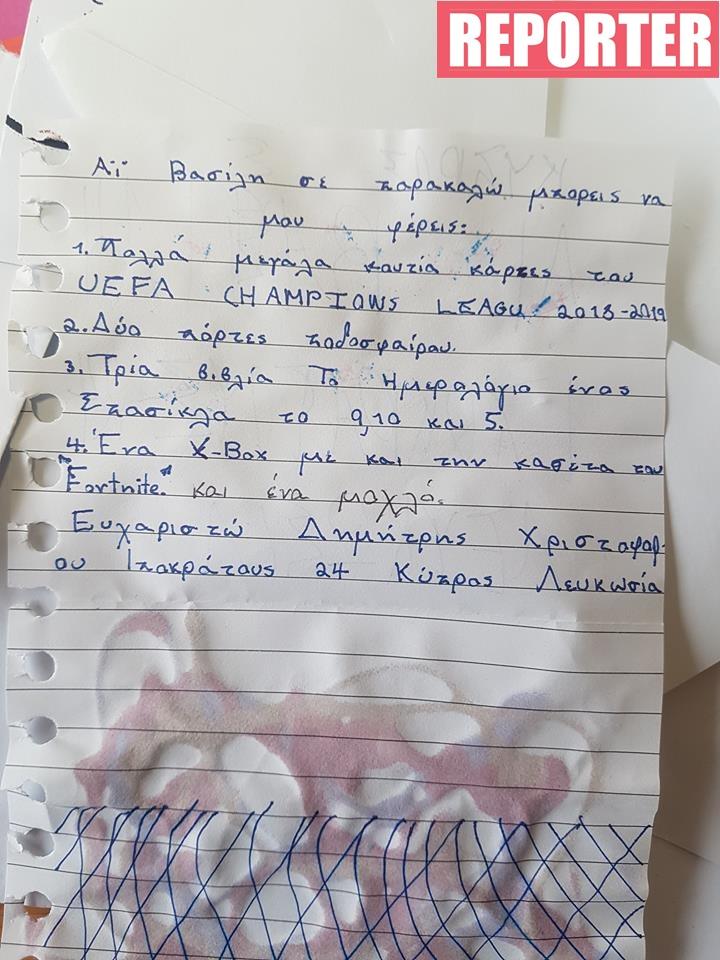 REPORTER
Αϊ Βασίλη σε παρακαλώ μπορεις να
μου φέρεις:
1. Πολλά μεγάλα κουτία κάρτες του
UEFA CHAMPIONS LEAGU 2018-2019
2. Δύο πόρτες ποδοσφαίρου.
3. Τρία βιβλία Το Ημερολόγιο ένος
Σπασίκλα το 9,10 και 5.
4. Ένα X-Box με και την κασέτα του
"Fortnite" και ένα μοχλό.
Ευχαριστώ Δημήτρης Χριστοφορ-
ου Ιποκράτους 24 Κύπρος Λευκωσία